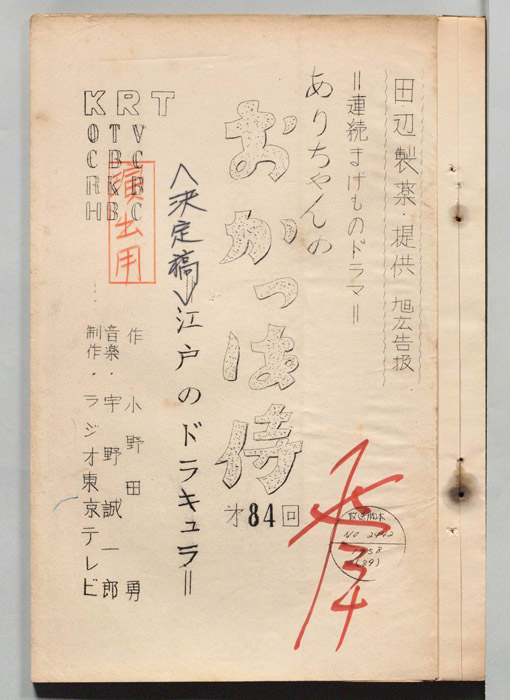 田辺製薬・提供 旭広告扱
＝連続まげものドラマ＝
ありちゃんの
おかっぱ侍
才84回
＜決定稿＞江戸のドラキュラ＝
KRT
OTV
CBC
RKB
HBC
演出用
作 小野田勇
音楽・宇野誠一郎
制作・ラジオ東京テレビ
放送脚本
1958
(89)